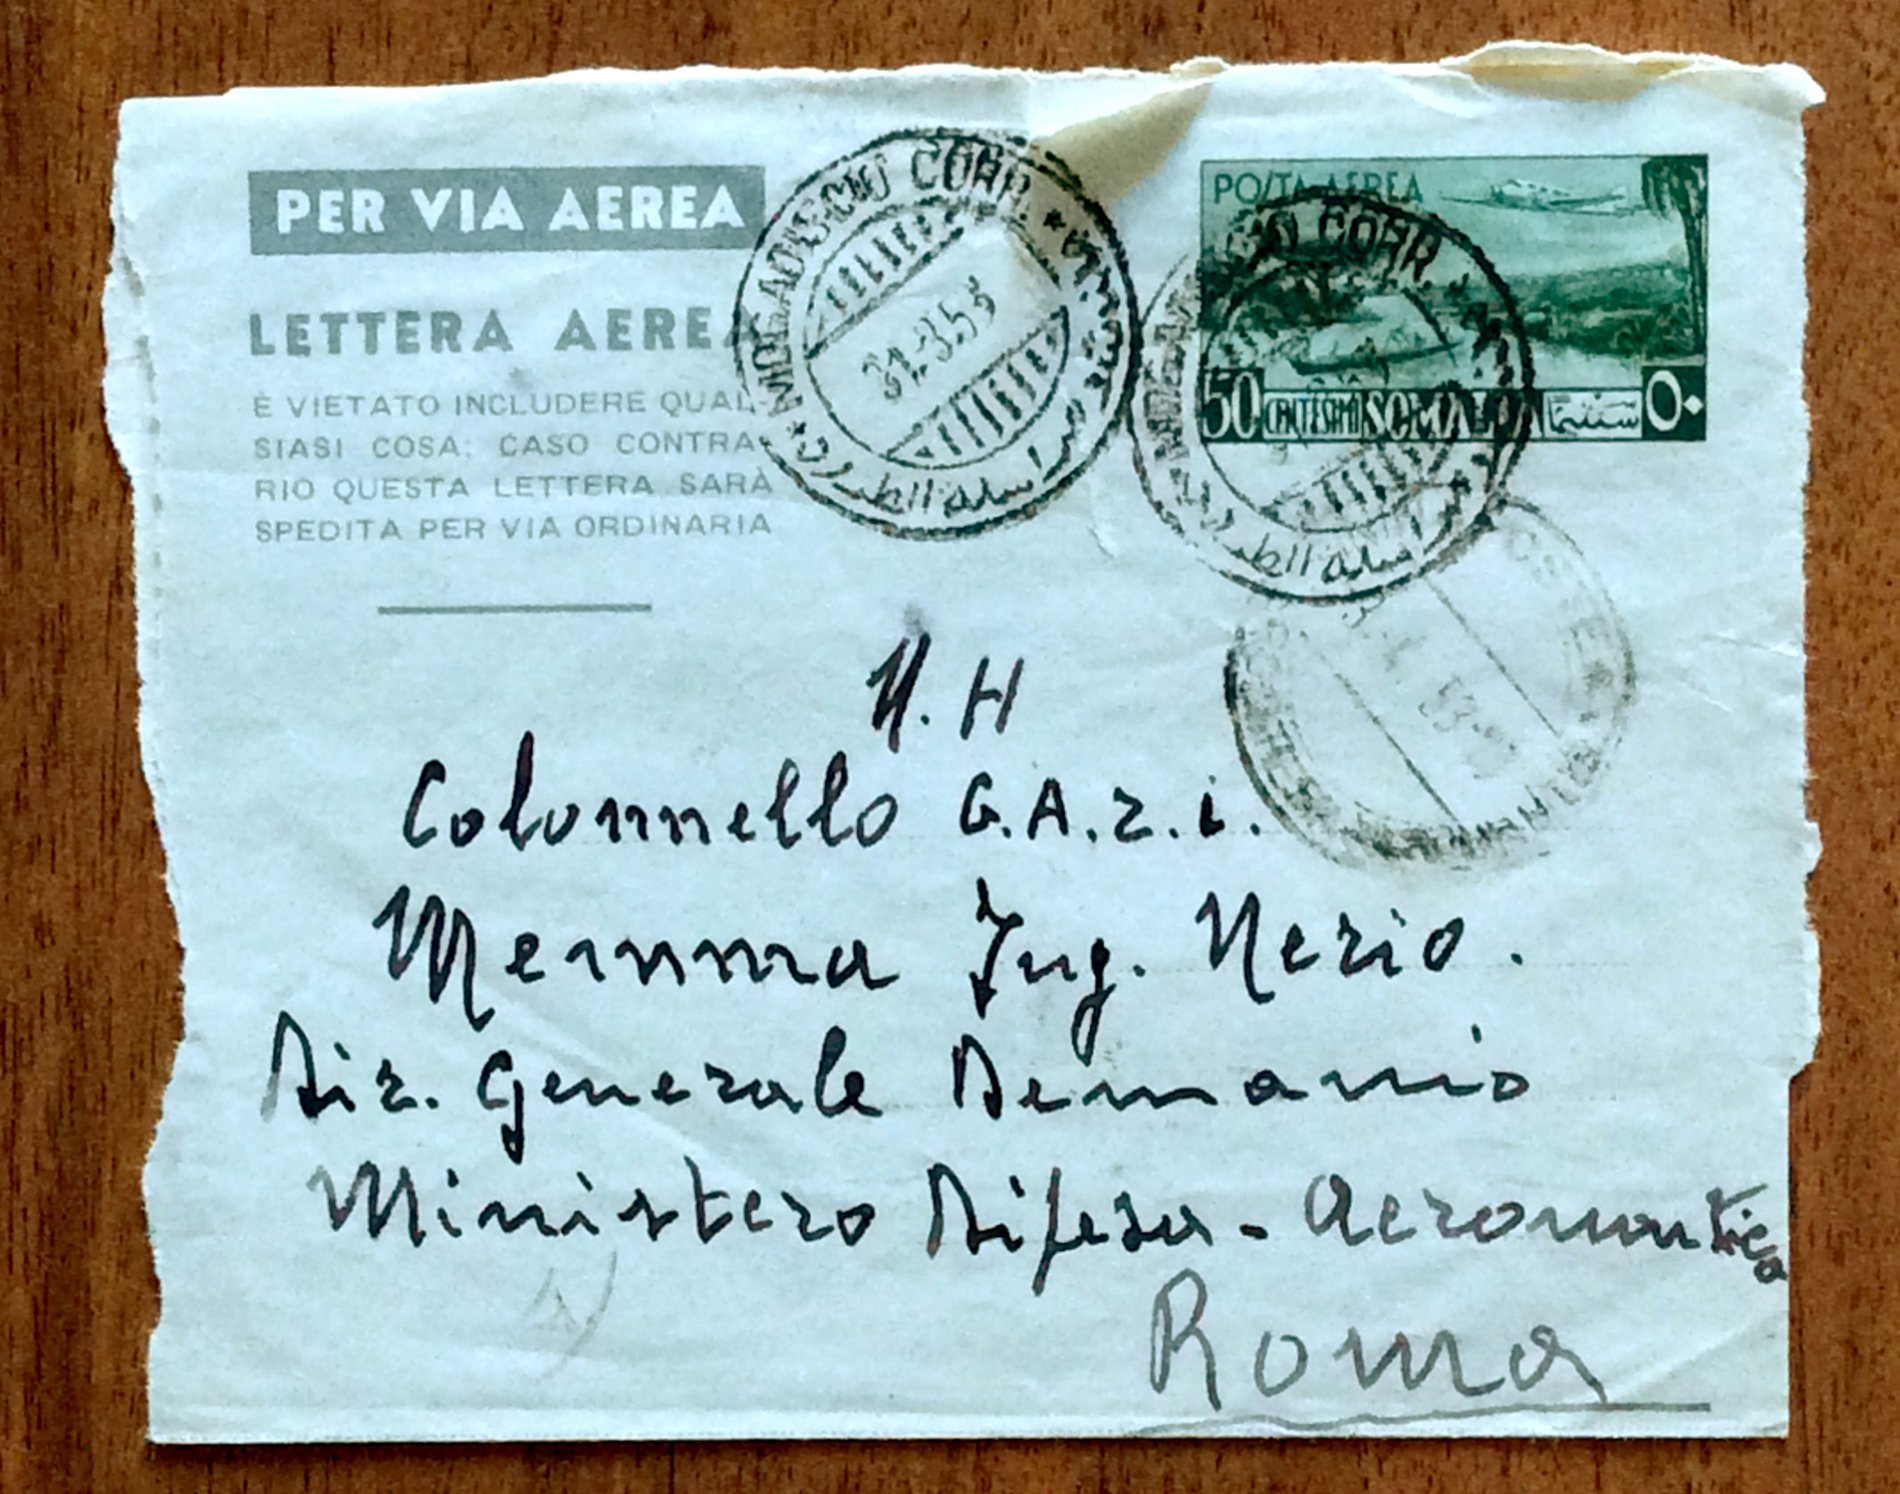 PER VIA AEREA
LETTERA AEREA
È VIETATO INCLUDERE QUAL-
SIASI COSA; CASO CONTRA-
RIO QUESTA LETTERA SARÀ
SPEDITA PER VIA ORDINARIA
MOGADISCIO CORR.
31.3.53
POSTA AEREA
50 CENTESIMI SOMALIA سنتيما ٥٠
CIO CORR.
53
N. H
Colonnello G.A.r.i.
Memma Ing. Nerio.
Dir. Generale Demanio
Ministero Difesa - Aeronautica
Roma